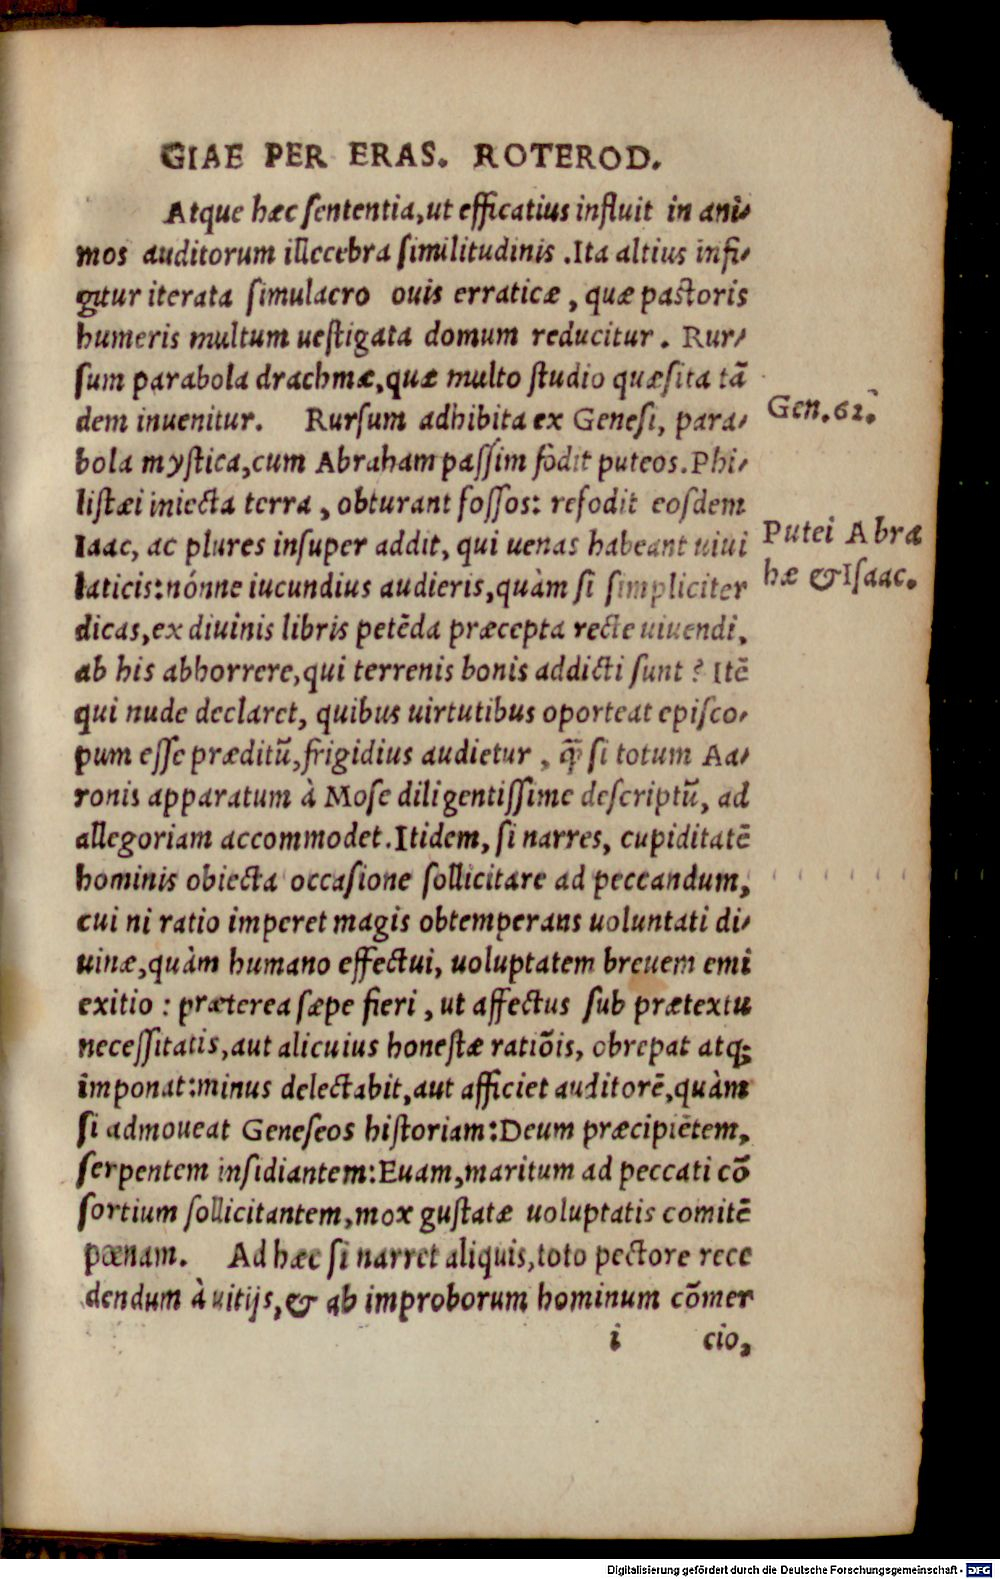 GIAE PER ERAS. ROTEROD.
Atque hæc sententia,ut efficatius influit in ani-
mos auditorum illecebra similitudinis .Ita altius infi-
gitur iterata simulacro ouis erraticæ , quæ pastoris
humeris multum uestigata domum reducitur . Rur-
sum parabola drachmæ,quæ multo studio quæsita tā
dem inuenitur. Rursum adhibita ex Genesi, para-
bola mystica,cum Abraham passim fodit puteos.Phi-
listæi iniecta terra , obturant fossos: refodit eosdem
Iaac, ac plures insuper addit, qui uenas habeant uiui
laticis:nónne iucundius audieris,quàm si simpliciter
dicas,ex diuinis libris petēda præcepta recte uiuendi,
ab his abhorrere,qui terrenis bonis addicti sunt ? Itē
qui nude declaret, quibus uirtutibus oporteat episco-
pum esse præditū,frigidius audietur , q̄ si totum Aa-
ronis apparatum à Mose diligentissime descriptū, ad
allegoriam accommodet.Itidem, si narres, cupiditatē
hominis obiecta occasione sollicitare ad peccandum,
cui ni ratio imperet magis obtemperans uoluntati di-
uinæ,quàm humano effectui, uoluptatem breuem emi
exitio : præterea sæpe fieri , ut affectus sub prætextu
necessitatis,aut alicuius honestæ ratiōis, obrepat atq;
imponat:minus delectabit,aut afficiet auditorē,quàm
si admoueat Geneseos historiam:Deum præcipiētem,
serpentem insidiantem:Euam,maritum ad peccati cō
sortium sollicitantem,mox gustatæ uoluptatis comitē
pœnam. Ad hæc si narret aliquis,toto pectore rece
dendum à uitijs,& ab improborum hominum cōmer
i cio,
Gen.62.
Putei Abra
hæ & Isaac.
Digitalisierung gefördert durch die Deutsche Forschungsgemeinschaft - DFG